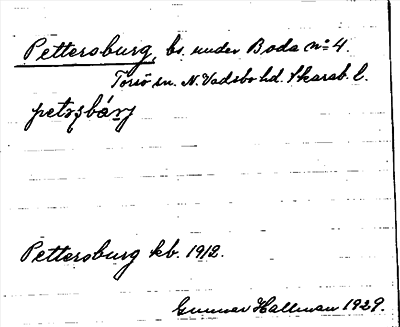 Pettersburg, bs. under Boda nº 4
Torsö sn. N. Vadsbo hd. Skarab. l.
Pettersburg kb. 1912.
Gunnar Hallman 1929.